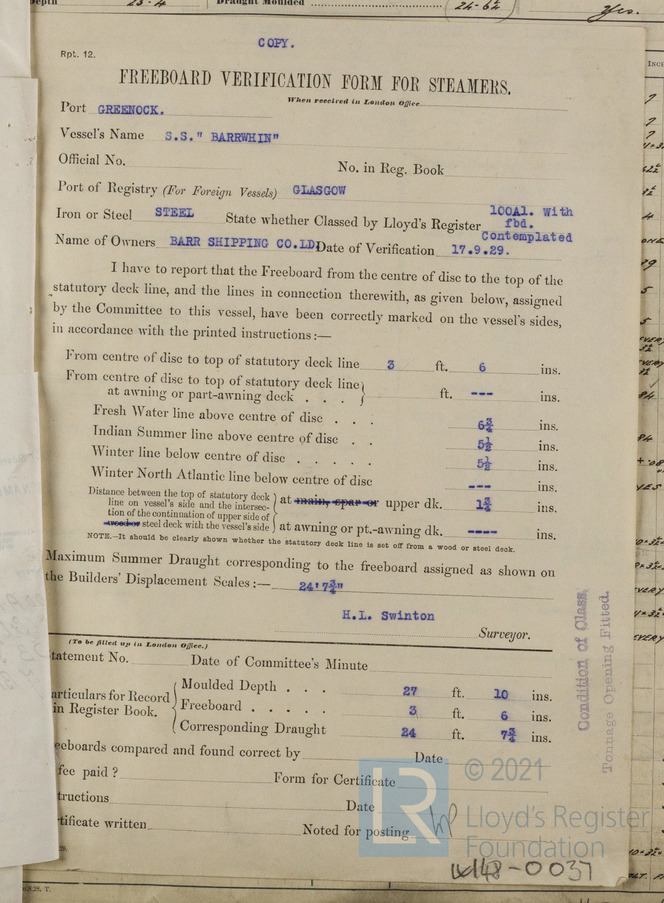 Depth 23-4 Draught Moulded (24-6½) Yes.
COPY.
Rpt. 12.
FREEBOARD VERIFICATION FORM FOR STEAMERS.
When received in London Office
Port GREENOCK.
Vessel's Name S.S." BARRWHIN"
Official No. No. in Reg. Book
Port of Registry (For Foreign Vessels) GLASGOW
Iron or Steel STEEL State whether Classed by Lloyd's Register 100A1. With fbd. Contemplated
Name of Owners BARR SHIPPING CO.LD, Date of Verification 17.9.29.
I have to report that the Freeboard from the centre of disc to the top of the
statutory deck line, and the lines in connection therewith, as given below, assigned
by the Committee to this vessel, have been correctly marked on the vessel's sides,
in accordance with the printed instructions:—
From centre of disc to top of statutory deck line 3 ft. 6 ins.
From centre of disc to top of statutory deck line
at awning or part-awning deck . . . ft. --- ins.
Fresh Water line above centre of disc . . . 6¾ ins.
Indian Summer line above centre of disc . . 5½ ins.
Winter line below centre of disc . . . . . 5½ ins.
Winter North Atlantic line below centre of disc --- ins.
Distance between the top of statutory deck
line on vessel's side and the intersec-
tion of the continuation of upper side of
wood or steel deck with the vessel's side
at main, spar or upper dk. 1¾ ins.
at awning or pt.-awning dk. ---- ins.
NOTE.—It should be clearly shown whether the statutory deck line is set off from a wood or steel deck.
Maximum Summer Draught corresponding to the freeboard assigned as shown on
the Builders' Displacement Scales:— 24'7¾"
H.L. Swinton
Surveyor.
(To be filled up in London Office.)
tatement No. Date of Committee's Minute
articulars for Record
in Register Book.
Moulded Depth . . . 27 ft. 10 ins.
Freeboard . . . . . 3 ft. 6 ins.
Corresponding Draught 24 ft. 7¾ ins.
eeboards compared and found correct by Date
fee paid ? Form for Certificate
tructions Date
tificate written Noted for posting
Condition of Class,
Tonnage Opening Fitted.
© 2021
LR
Lloyd's Register
Foundation
W148-0037